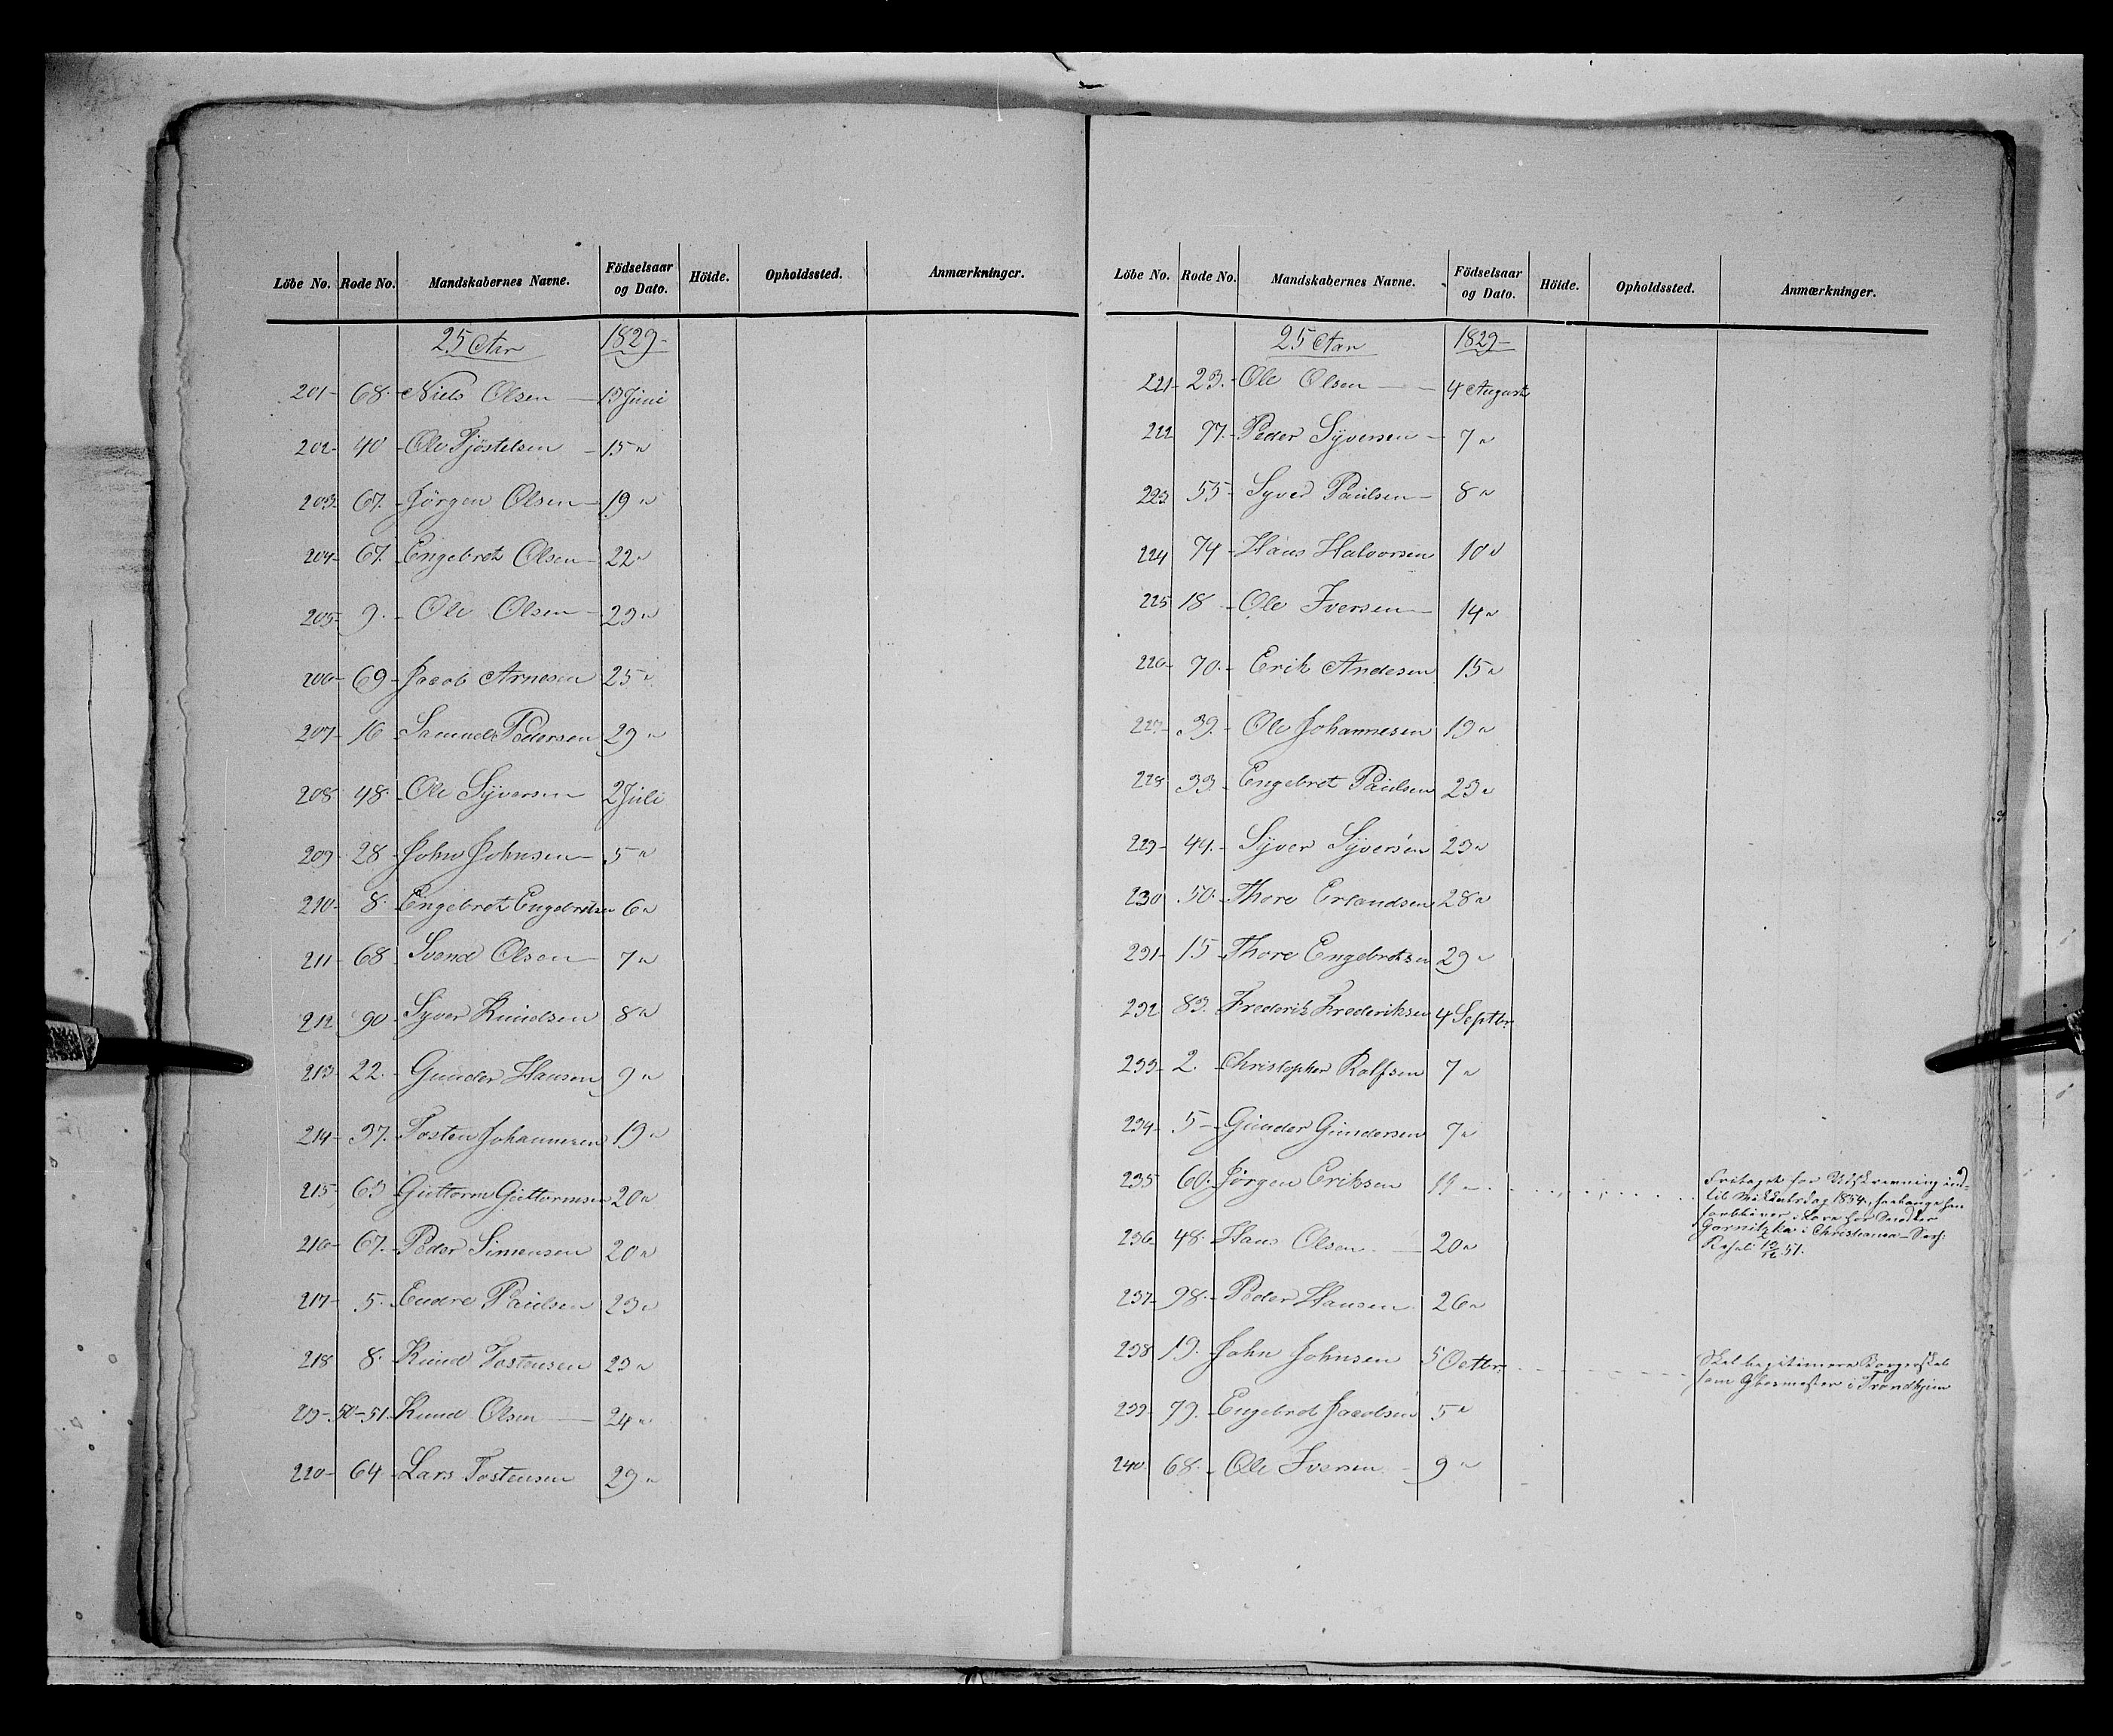 Löbe No. Rode No. Mandskabernes Navne. Födselsaar og Dato. Höide. Opholdssted. Anmærkninger.
25 Aar 1829-
201- 68. Niels Olsen 13 Juni
202- 40 Ole Fjöstelsen 15 "
203- 67. Jörgen Olsen 19 "
204- 67. Engebret Olsen 22 "
205- 9. Ole Olsen 23 "
206- 69 Jacob Arnesen 25 "
207- 16 Samuel Pedersen 29 "
208 48. Ole Syversen 2 Juli
209- 28 John Johnsen 5 "
210- 8. Engebret Engebretsen 6 "
211- 68 Svend Olsen 7 "
212 90 Syver Knudsen 8 "
213- 22. Gunder Hansen 9 "
214- 37. Tosten Johannesen 19 "
215- 63 Guttorm Guttormsen 20 "
216- 67. Peder Simensen 20 "
217- 5. Endre Paulsen 23 "
218 8. Knud Tostensen 23 "
219- 50-51. Knud Olsen 24 "
220- 64 Lars Tostensen 29 "
Löbe No. Rode No. Mandskabernes Navne. Födselsaar og Dato. Höide. Opholdssted. Anmærkninger.
25 Aar 1829-
221- 23. Ole Olsen 4 August
222 77. Peder Syversen 7 "
223 55 Syver Paulsen 8 "
224 74 Hans Halvorsen 10 "
225 18 Ole Iversen 14 "
226- 70. Erik Andesen 15 "
227- 39. Ole Johannesen 19 "
228 33. Engebret Paulsen 23 "
229- 44. Syver Syversen 23 "
230 50. Thore Erlandsen 28 "
231- 15 Thore Engebretsen 29 "
232 83. Frederik Frederiksen 4 Septbr.
233- 2. Christopher Rolfsen 7 "
234- 5 Gunder Gundersen 7 "
235 60. Jörgen Eriksen 19 Fritaget for Udskrivning ind-
til Mikkelsdag 1854, saalænge han
forbliver i Lære hos Snedker
Garnitzka i Christiania
236- 48. Hans Olsen 20 "
237- 98. Peder Hansen 26 "
238 19. John Johnsen 5 Octbr. Skal legitimere Borgerskab
som Glasmester i Trondhjem
239- 79. Engebret Jacobsen 5 "
240. 68. Ole Iversen 9 "